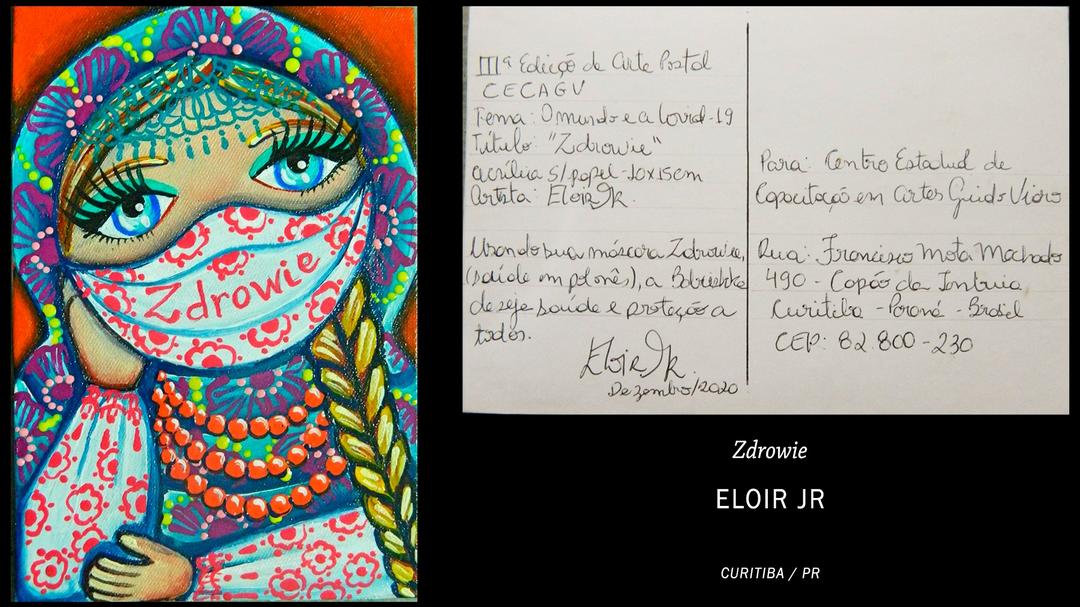 Zdrowie
IIIª Edição de Arte Postal
CECAGV
Tema: O mundo e a Covid-19
Título: "Zdrowie"
acrílica s/papel - 10x15cm
Artista: Eloir Jr.
Usando sua máscara Zdrowie,
(saúde em polonês), a
deseja saúde e proteção a
todos.
Eloir Jr.
Dezembro/2020
Para: Centro Estadual de
Capacitação em Artes Guido Viaro
Rua: Francisco Mota Machado
490 - Capão da Imbuia
Curitiba - Paraná - Brasil
CEP: 82.800-230
Zdrowie
ELOIR JR
CURITIBA / PR